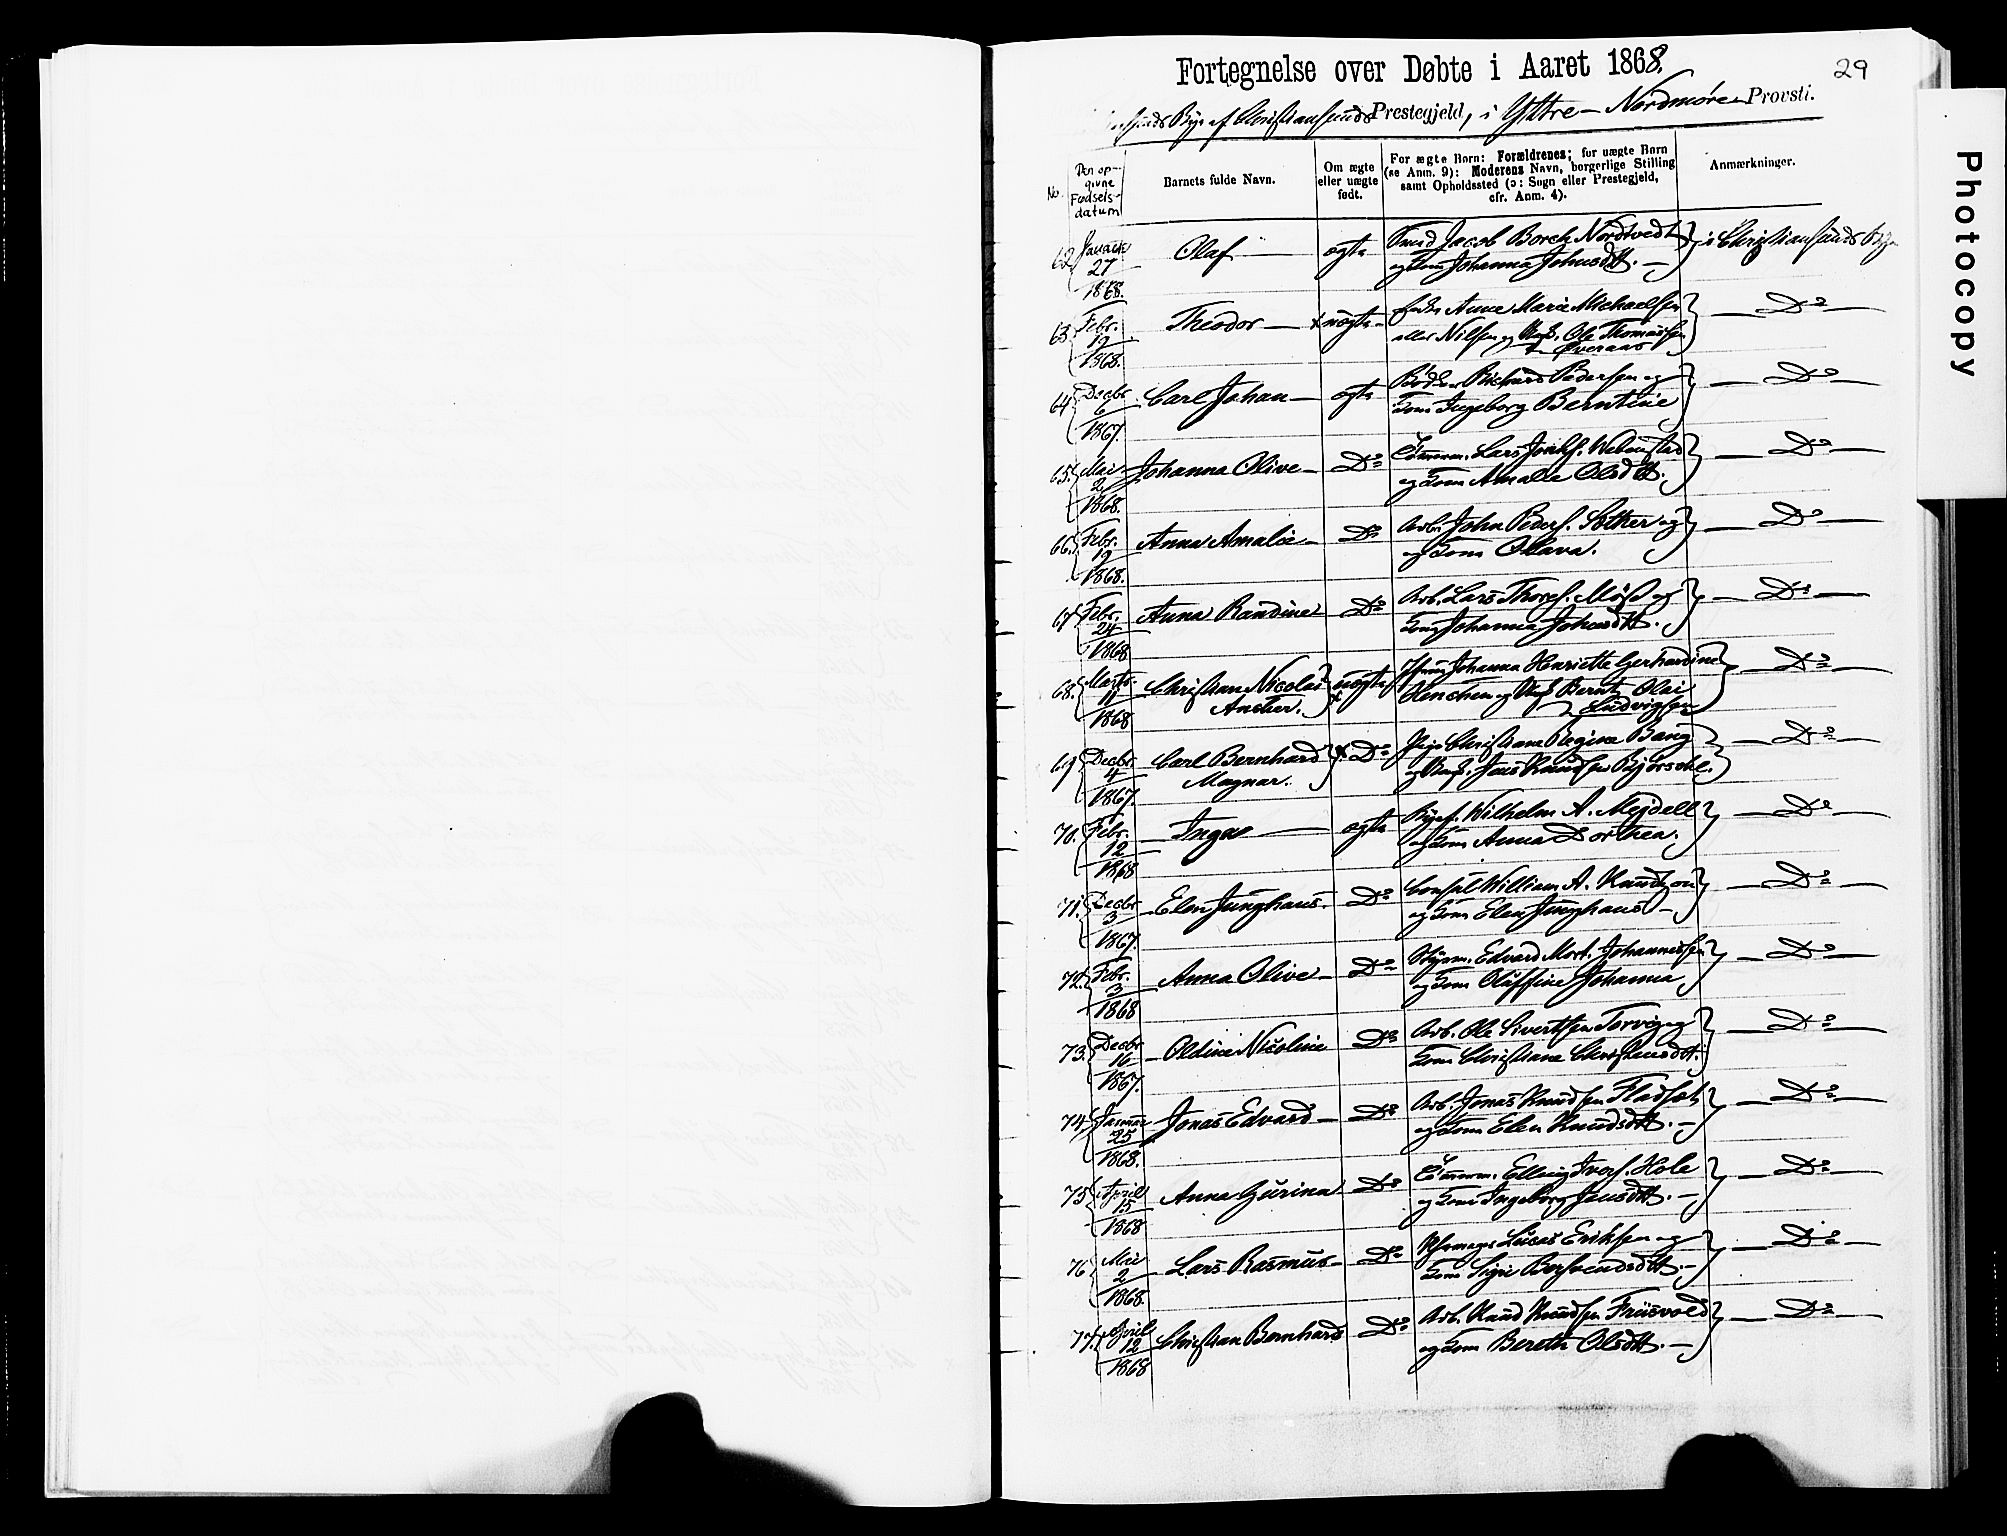 Fortegnelse over Døbte i Aaret 1868.
29
Bye af Christiansunds Prestegjeld, i Yttre- Nordmøre Provsti.
No.
Den op-
givne
Fødsels-
datum
Barnets fulde Navn.
Om ægte
eller uægte
født.
For ægte Børn: Forældrenes; for uægte Børn
(se Anm. 9): Moderens Navn, borgerlige Stilling
samt Opholdssted (ɔ: Sogn eller Prestegjeld,
cfr. Anm. 4).
Anmærkninger.
62 Januar 27 1868. Olaf — ægte Smed Jacob Borch Nordtvedt
og Johanna Johnsdtt. — i Christiansunds Bye
63 Febr. 19 1868. Theodor — x uægte — Anne Marie Michaelsen
eller Nilsen og Ole Thomassen
Øveraas — Do —
64 Decbr 6 1867. Carl Johan — ægte Richard Pedersen og
Ingeborg Berntine — Do —
65. Mai 2 1868. Johanna Olive — Do Tømmerm. Lars
og Amalie Olsdtt. — Do —
66. Febr. 19 1868. Anna Amalie — Do Arb. John Peders. Sother og
og Olava. — Do —
67 Febr. 24 1868 Anna Randine Do Arb. Lars og
Johanna Johnsdtt. — Do —
68. Marts 11 1868 Christian Nicolai
Ancher. x uægte Johanna Henriette Gerhardine
Henchen og Bernt Olai
Ludvigsen — Do —
69 Decbr 4 1867. Carl Bernhard
Magnar. x Do Pige Christiane Regine Bang
og Jens Knudsen — Do —
70. Febr. 12 1868 — Inga — ægte Wilhelm A. Mejdell
og Anna Dorthea. — Do —
71. Decbr 3 1867. Elen Junghans. Do Consul William A. Knudtzon
og Elen Junghans — Do —
72. Febr. 3 1868 Anna Olive — Do Styrm. Edvard Mort. Johannessen
og Oluffine Johanna — Do —
73. Decbr 16 1867. Oldine Nicoline Do Arb. Ole Sivertsen Torvig og
Christiane Christensdtt. — Do —
74 Januar 25 1868. Jonas Edvard — Do Arb. Jonas Knudsen Fladset
og Elen Knudsdtt. — Do —
75 April 15 1868 Anna Gurina Do Tømmerm. Elling Ivers. Hole
og Ingeborg Jensdtt. — Do —
76 Mai 2 1868. Lars Rasmus — Do Lucas Eriksen og
Sigri — Do —
77. April 12 1868 Christian Bernhard Do Arb. Knud Knudsen Friisvold
og Bereth Olsdtt. — Do —
Photocopy